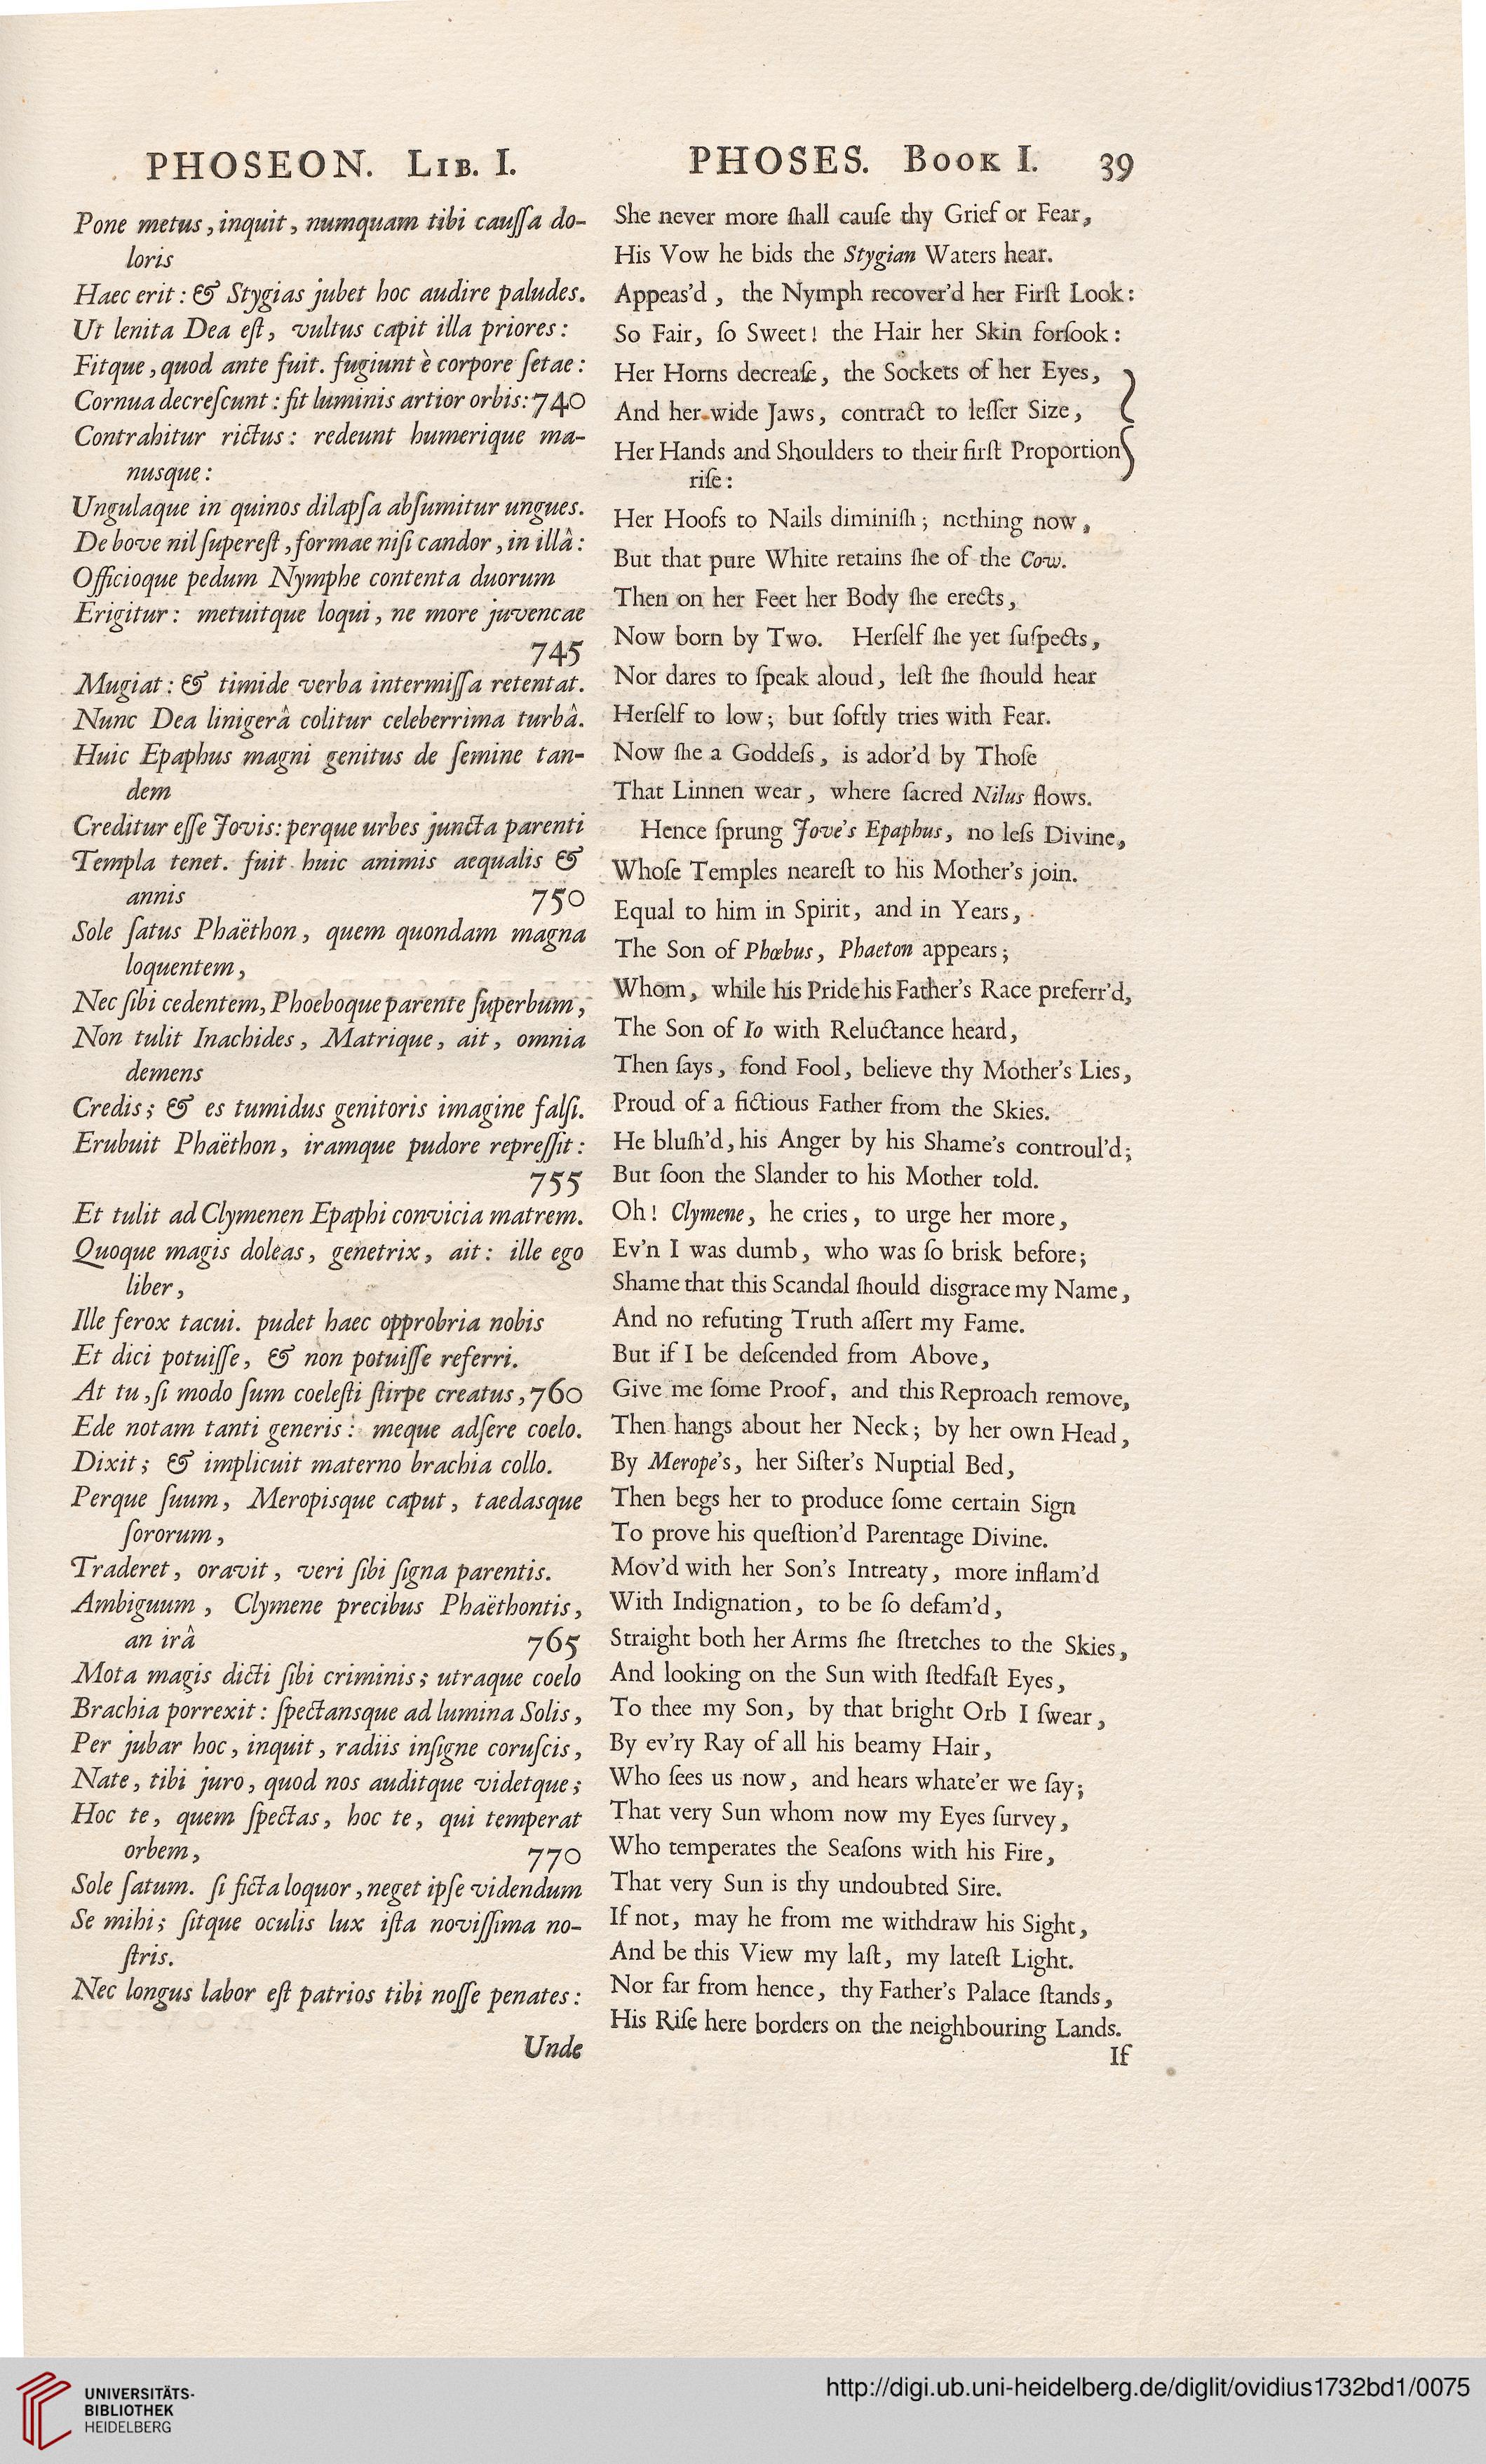 PHOSEON. LIB. I.
Pone metus, inquit, numquam tibi cauſſa do-
loris
Haec erit: & Stygias jubet hoc audire paludes.
Ut lenita Dea eſt, vultus capit illa priores:
Fitque, quod ante fuit. fugiunt è corpore ſetae:
Cornua decreſcunt: fit luminis artior orbis: 740
Contrahitur rictus: redeunt humerique ma-
nusque:
Ungulaque in quinos dilapſa abſumitur ungues.
De bove nil ſupereſt, formae niſi candor, in illâ:
Officioque pedum Nymphe contenta duorum
Erigitur: metuitque loqui, ne more juvencae
745
Mugiat: & timide verba intermiſſa retentat.
Nunc Dea linigerâ colitur celeberrima turbâ.
Huic Epaphus magni genitus de ſemine tan-
dem
Creditur eſſe Jovis: perque urbes juncta parenti
Templa tenet. fuit huic animis aequalis &
annis 750
Sole ſatus Phaëthon, quem quondam magna
loquentem,
Nec ſibi cedentem, Phoeboque parente ſuperbum,
Non tulit Inachides, Matrique, ait, omnia
demens
Credis; & es tumidus genitoris imagine falſi.
Erubuit Phaëthon, iramque pudore repreſſit:
755
Et tulit ad Clymenen Epaphi convicia matrem.
Quoque magis doleas, genetrix, ait: ille ego
liber,
Ille ferox tacui. pudet haec opprobria nobis
Et dici potuiſſe, & non potuiſſe referri.
At tu, ſi modo ſum coeleſti ſtirpe creatus, 760
Ede notam tanti generis: meque adſere coelo.
Dixit; & implicuit materno brachia collo.
Perque ſuum, Meropisque caput, taedasque
ſororum,
Traderet, oravit, veri ſibi ſigna parentis.
Ambiguum, Clymene precibus Phaëthontis,
an irâ 765
Mota magis dicti ſibi criminis; utraque coelo
Brachia porrexit: ſpectansque ad lumina Solis,
Per jubar hoc, inquit, radiis inſigne coruſcis,
Nate, tibi juro, quod nos auditque videtque;
Hoc te, quem ſpectas, hoc te, qui temperat
orbem, 770
Sole ſatum. ſi ficta loquor, neget ipſe videndum
Se mihi; ſitque oculis lux iſta noviſſima no-
ſtris.
Nec longus labor eſt patrios tibi noſſe penates:
Unde
PHOSES. BOOK I. 39
She never more ſhall cauſe thy Grief or Fear,
His Vow he bids the Stygian Waters hear.
Appeas'd, the Nymph recover'd her Firſt Look:
So Fair, ſo Sweet! the Hair her Skin forſook:
Her Horns decreaſe, the Sockets of her Eyes,
And her wide Jaws, contract to leſſer Size,
Her Hands and Shoulders to their firſt Proportion
riſe:
Her Hoofs to Nails diminiſh; nothing now,
But that pure White retains ſhe of the Cow.
Then on her Feet her Body ſhe erects,
Now born by Two. Herſelf ſhe yet ſuſpects,
Nor dares to ſpeak aloud, leſt ſhe ſhould hear
Herſelf to low; but ſoftly tries with Fear.
Now ſhe a Goddeſs, is ador'd by Thoſe
That Linnen wear, where ſacred Nilus flows.
Hence ſprung Jove's Epaphus, no leſs Divine,
Whoſe Temples neareſt to his Mother's join.
Equal to him in Spirit, and in Years,
The Son of Phœbus, Phaeton appears;
Whom, while his Pride his Father's Race preferr'd,
The Son of Io with Reluctance heard,
Then ſays, fond Fool, believe thy Mother's Lies,
Proud of a fictious Father from the Skies.
He bluſh'd, his Anger by his Shame's controul'd;
But ſoon the Slander to his Mother told.
Oh! Clymene, he cries, to urge her more,
Ev'n I was dumb, who was ſo brisk before;
Shame that this Scandal ſhould disgrace my Name,
And no refuting Truth aſſert my Fame.
But if I be deſcended from Above,
Give me ſome Proof, and this Reproach remove,
Then hangs about her Neck; by her own Head,
By Merope's, her Siſter's Nuptial Bed,
Then begs her to produce ſome certain Sign
To prove his queſtion'd Parentage Divine.
Mov'd with her Son's Intreaty, more inflam'd
With Indignation, to be ſo defam'd,
Straight both her Arms ſhe ſtretches to the Skies,
And looking on the Sun with ſtedfaſt Eyes,
To thee my Son, by that bright Orb I ſwear,
By ev'ry Ray of all his beamy Hair,
Who ſees us now, and hears whate'er we ſay;
That very Sun whom now my Eyes ſurvey,
Who temperates the Seaſons with his Fire,
That very Sun is thy undoubted Sire.
If not, may he from me withdraw his Sight,
And be this View my laſt, my lateſt Light.
Nor far from hence, thy Father's Palace ſtands,
His Riſe here borders on the neighbouring Lands.
If
UNIVERSITÄTS-
BIBLIOTHEK
HEIDELBERG
http://digi.ub.uni-heidelberg.de/diglit/ovidius1732bd1/0075